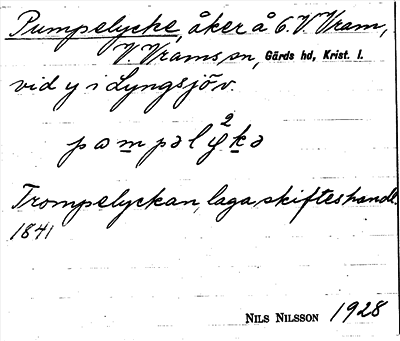 Pumpelycke, åker å 6. V. Vram,
V. Vrams sn, Gärds hd, Krist. l.
vid y i Lyngsjöv.
Trompelyckan, laga skifteshandl.
1841
NILS NILSSON 1928